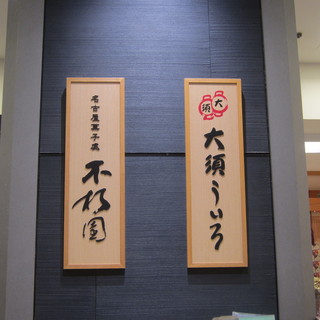 大須
大須ういろ
名古屋菓子処
不朽園